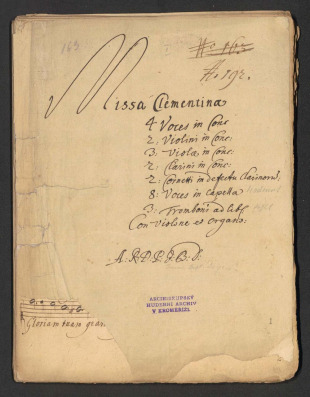 163
No 163
No 192.
Missa Clementina
4 Voces in Conc
2: Violini in Conc:
3: Violæ in Conc:
2: Clarini in Conc:
2: Cornetti in defectu Clarinorũ
8: Voces in Capella
3: Tromboni ad lib:
Con Violone et Organo.
A. R. D. P. J. B. D.
Gloriam tuam gran.
ARCIBISKUPSKÝ
HUDEBNÍ ARCHIV
V KROMĚŘÍŽI.